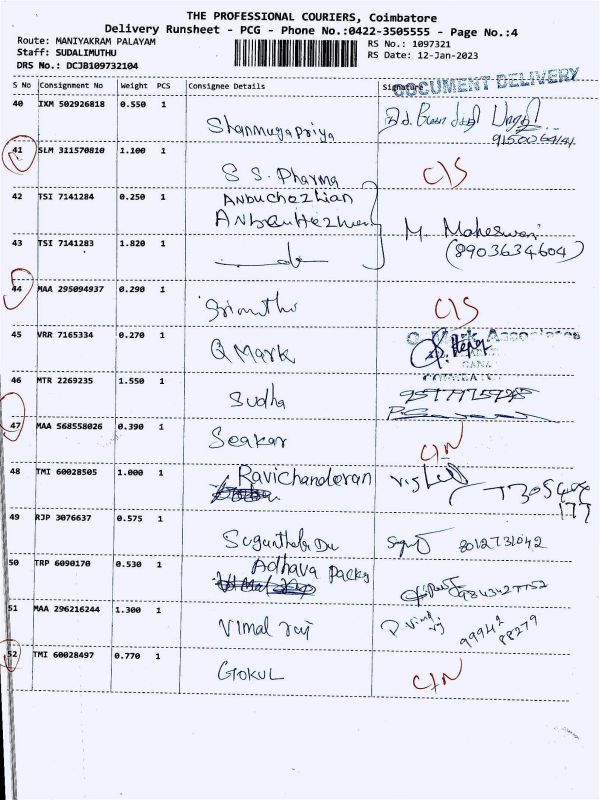 THE PROFESSIONAL COURIERS, Coimbatore
Delivery Runsheet - PCG - Phone No.:0422-3505555 - Page No.:4
Route: MANIYAKRAM PALAYAM
RS No.: 1097321
Staff: SUDALIMUTHU
RS Date: 12-Jan-2023
DRS No.: DCJB109732104
DOCUMENT DELIVERY
S No Consignment No Weight PCS Consignee Details Signature
40 IXM 502926818 0.550 1
Shanmugapriya
41 SLM 311570810 1.100 1
S S. Pharma C/S
42 TSI 7141284 0.250 1
ANbuchezhian
M. Maheswari
43 TSI 7141283 1.820 1
(8903634604)
44 MAA 295094937 0.290 1
Srimathi C/S
45 VRR 7165334 0.270 1
Q Mark
46 MTR 2269235 1.550 1
Sudha
47 MAA 568558026 0.390 1
Seakar C/N
48 TMI 60028505 1.000 1
Ravichanderan
49 RJP 3076637 0.575 1
8012731042
50 TRP 6090170 0.530 1
Adhava Packs
9843427752
51 MAA 296216244 1.300 1
Vimal raj
99942
88279
52 TMI 60028497 0.770 1
GOKUL C/N